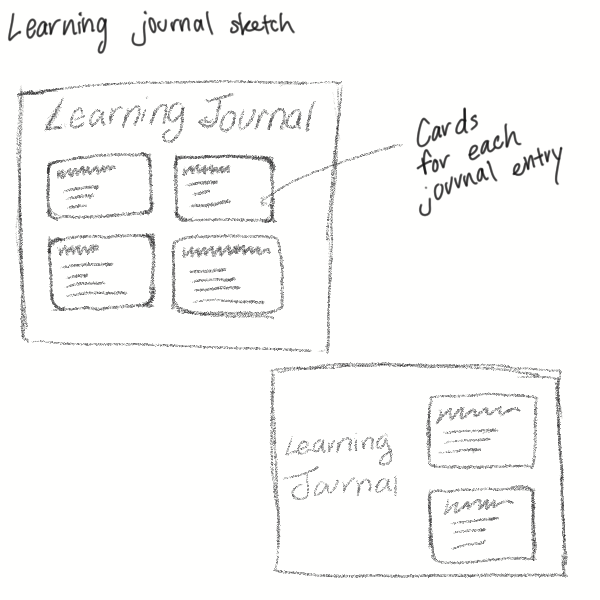 Learning journal sketch
Learning Journal
Cards
for each
journal entry
Learning
Journal